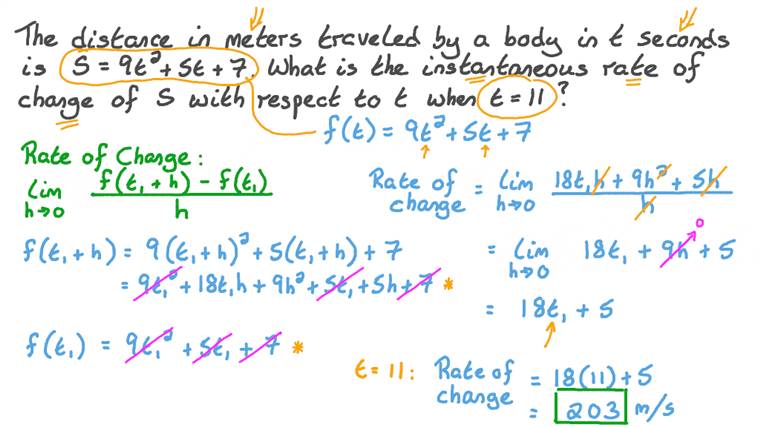 The distance in meters traveled by a body in t seconds
is S = 9t² + 5t + 7. What is the instantaneous rate of
change of S with respect to t when t = 11 ?
f(t) = 9t² + 5t + 7
Rate of Change :
lim h→0 (f(t₁ + h) − f(t₁)) / h
f(t₁ + h) = 9(t₁ + h)² + 5(t₁ + h) + 7
= 9t₁² + 18t₁h + 9h² + 5t₁ + 5h + 7 *
f(t₁) = 9t₁² + 5t₁ + 7 *
Rate of change = lim h→0 (18t₁h + 9h² + 5h) / h
= lim h→0 18t₁ + 9h + 5
0
= 18t₁ + 5
t = 11 : Rate of change = 18(11) + 5
= 203 m/s